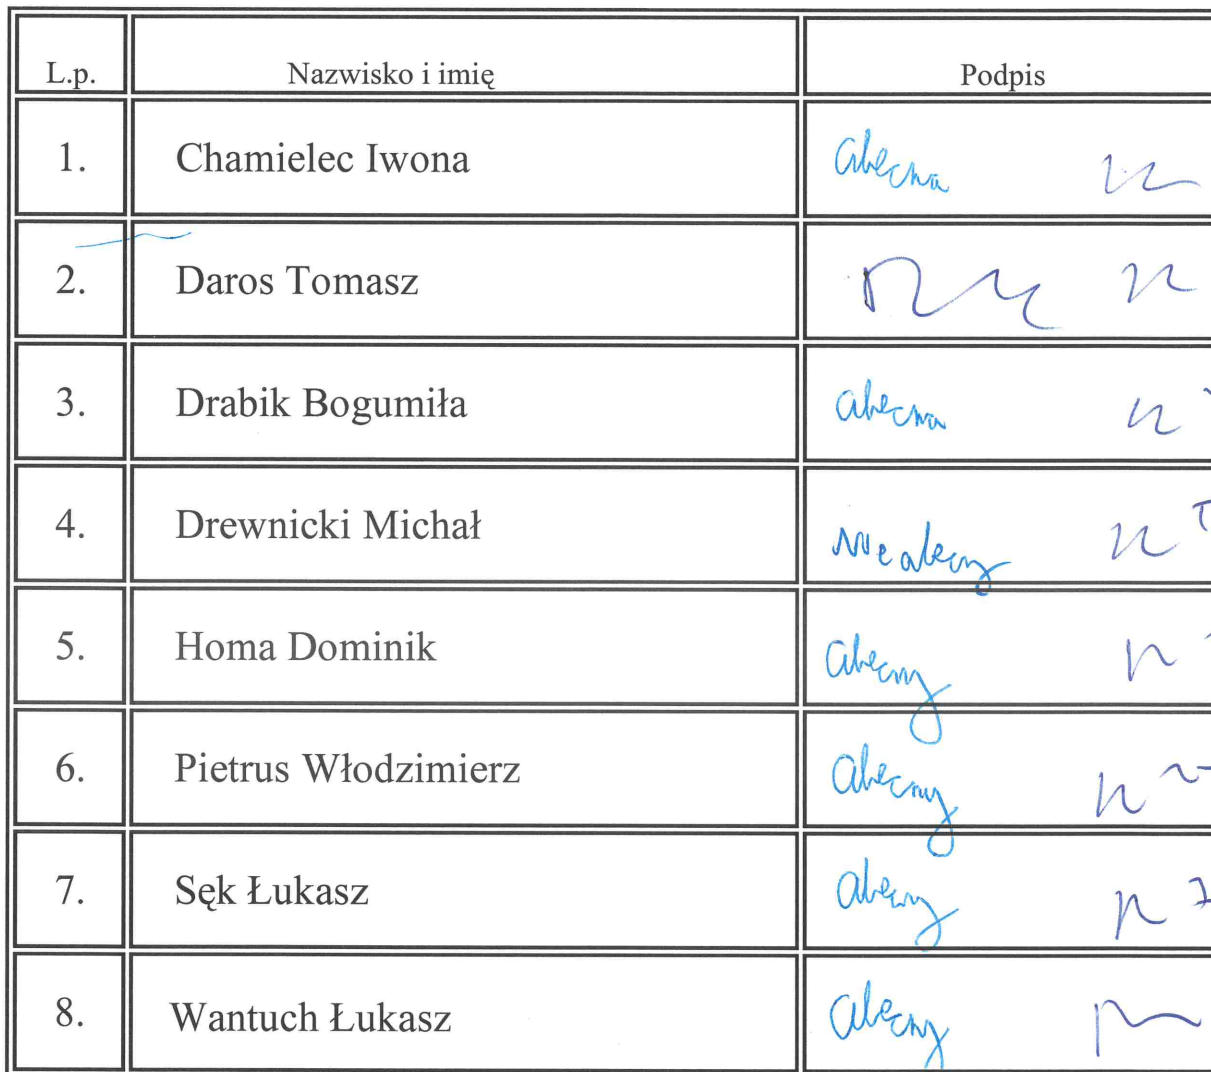 L.p. Nazwisko i imię Podpis
1. Chamielec Iwona obecna
2. Daros Tomasz
3. Drabik Bogumiła obecna
4. Drewnicki Michał nieobecny
5. Homa Dominik obecny
6. Pietrus Włodzimierz obecny
7. Sęk Łukasz obecny
8. Wantuch Łukasz obecny